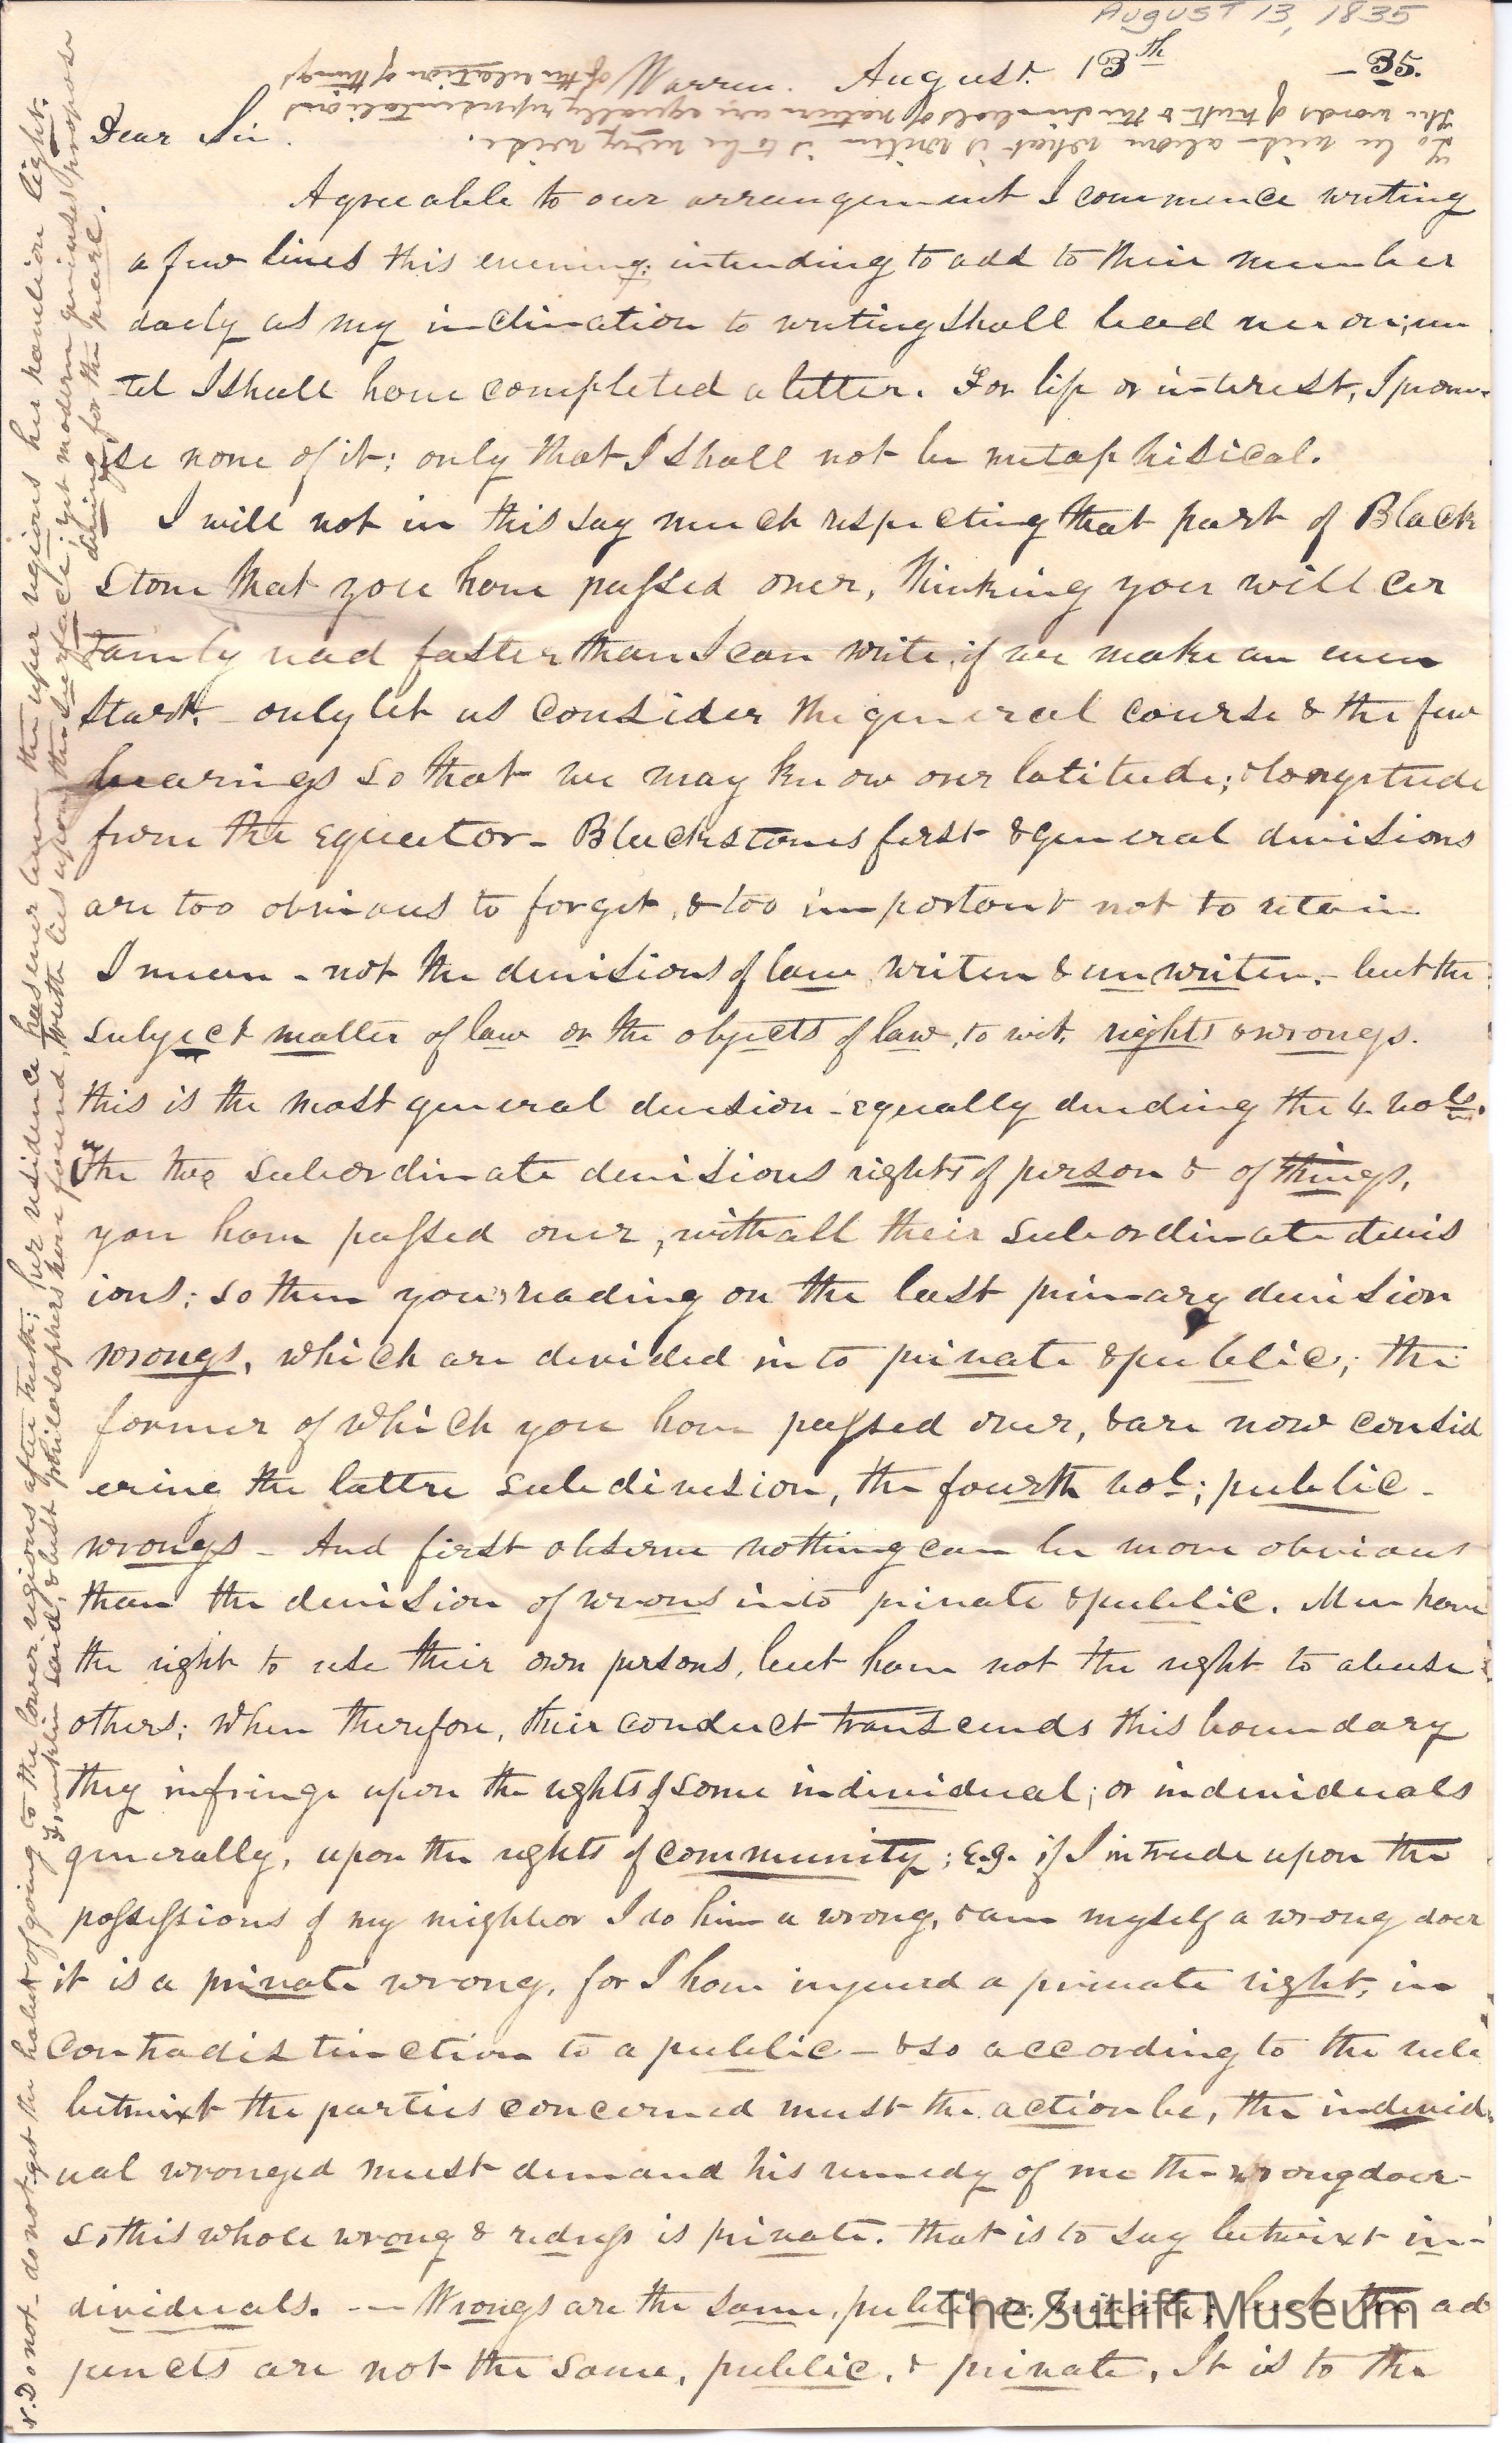 AUGUST 13, 1835
Warren. August. 13th —35.
Dear Sir.
Agreeable to our arrangement I commence writing
a few lines this evening; intending to add to their number
daily as my inclination to writing shall lead me on; un
til I shall have completed a letter. For life or interest, I prom-
ise none of it: only that I shall not be metaphisical.
I will not in this say much respecting that part of Black
stone that you have passed over, thinking you will cer
tainly read faster than I can write, if we make an even
start. – only let us consider the general course & the few
bearings so that we may know our latitude; & longitude
from the equator – Blackstones first & general divisions
are too obvious to forget, & too important not to retain
I mean – not the divisions of law writen & unwriten. – but the
subject matter of law or the objects of law, to wit, rights & wrongs.
this is the most general division – equally dividing the 4 vols.
In the two subordinate divisions rights of person & of things,
you have passed over, with all their subordinate divis
ions: so then your reading on the last primary division
wrongs, which are devided into private & public; the
former of which you have passed over, & are now consid
ering the lattre subdivision, the fourth vol; public –
wrongs – And first observe nothing can be more obvious
than the division of wrons into private & public. Men have
the right to use their own persons, but have not the right to abuse
others; when therefore, their conduct transcends this boundary
they infringe upon the rights of some individual; or individuals
generally, upon the rights of community; e.g. if I intrude upon the
possessions of my neighbor I do him a wrong, & am myself a wrong doer
it is a private wrong, for I have injured a private right, in
contradistinction to a public – & so according to the rule
betwixt the parties concerned must the action be, the individ-
ual wronged must demand his remedy of me the wrongdoer –
So this whole wrong & redress is private. that is to say betwixt in-
dividuals. — Wrongs are the same, public or private; but the ad
juncts are not the same, public, & private, It is to the
N.B. Do not – do not get the habit of going to the lower regions after truth; her residence has ever been the uper regions her pavilion light.
Franklin said, & best philosophers have found, truth lies upon the surface; yet modern geniuses propose
diving for the pearl.
To be wise above what is writen is to be very wise.
The words of truth & the simbols of nature are equally representations
of the relation of things
The Sutliff Museum